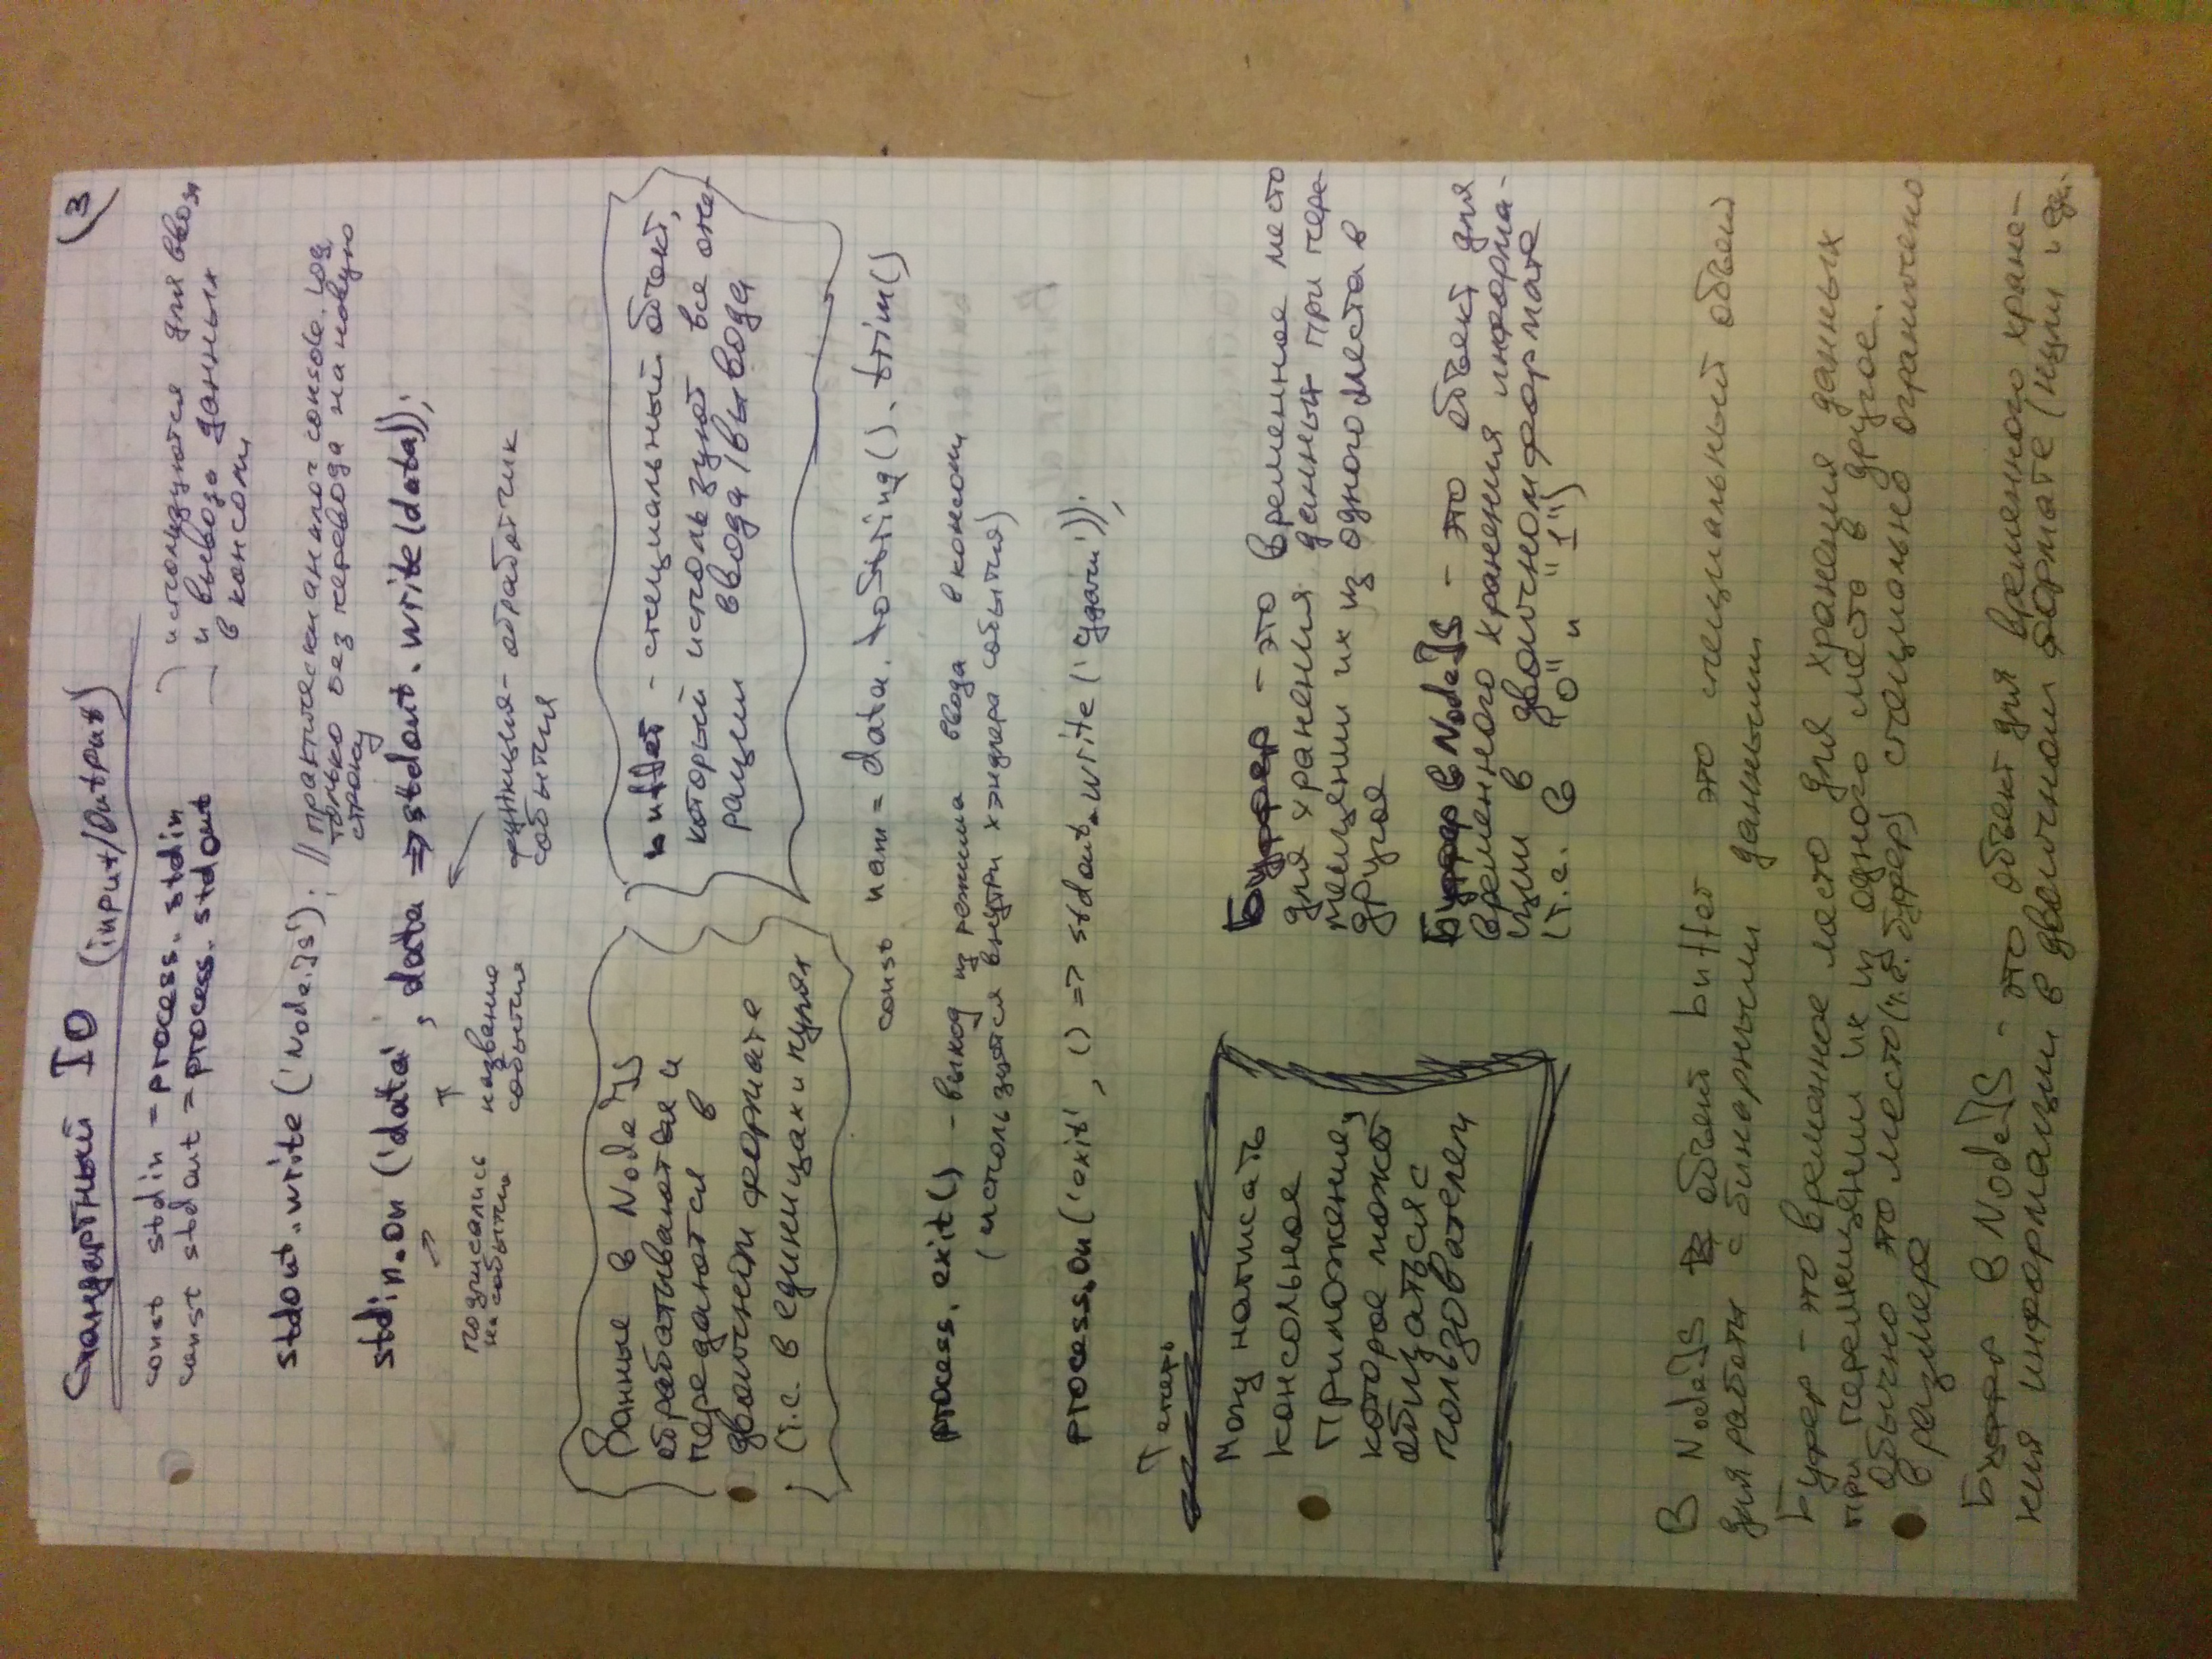 Стандартный IO (input/Output)
3
const stdin = process.stdin
const stdout = process.stdout
используются для ввода
и вывода данных
в консоли
stdout.write('Node.JS'); // практически аналог console.log,
только без перевода на новую
строку
stdin.on('data', data => stdout.write(data));
подписались
на событие
название
события
функция-обработчик
события
Данные в NodeJS
обрабатываются и
передаются в
двоичном формате
(т.е. в единицах и нулях
buffer - специальный объект,
который используют все опе-
рации ввода/вывода
const nam = data.toString().trim()
process.exit() - выход из режима ввода в консоли
(используется внутри хэндлера события)
process.on('exit', () => stdout.write('Удачи'));
Теперь
Могу написать
консольное
приложение,
которое может
общаться с
пользователем
Буффер - это временное место
для хранения данных при пере-
мещении их из одного места в
другое
Буффер в NodeJS - это объект для
временного хранения информа-
ции в двоичном формате
(т.е. в "0" и "1")
В NodeJS объект buffer это специальный объект
для работы с бинарными данными
Буфер - это временное место для хранения данных
при перемещении их из одного места в другое.
Обычно это место (т.е. буфер) специально ограничено
в размере
Буффер в NodeJS - это объект для временного хране-
ния информации в двоичном формате (нули и еди-